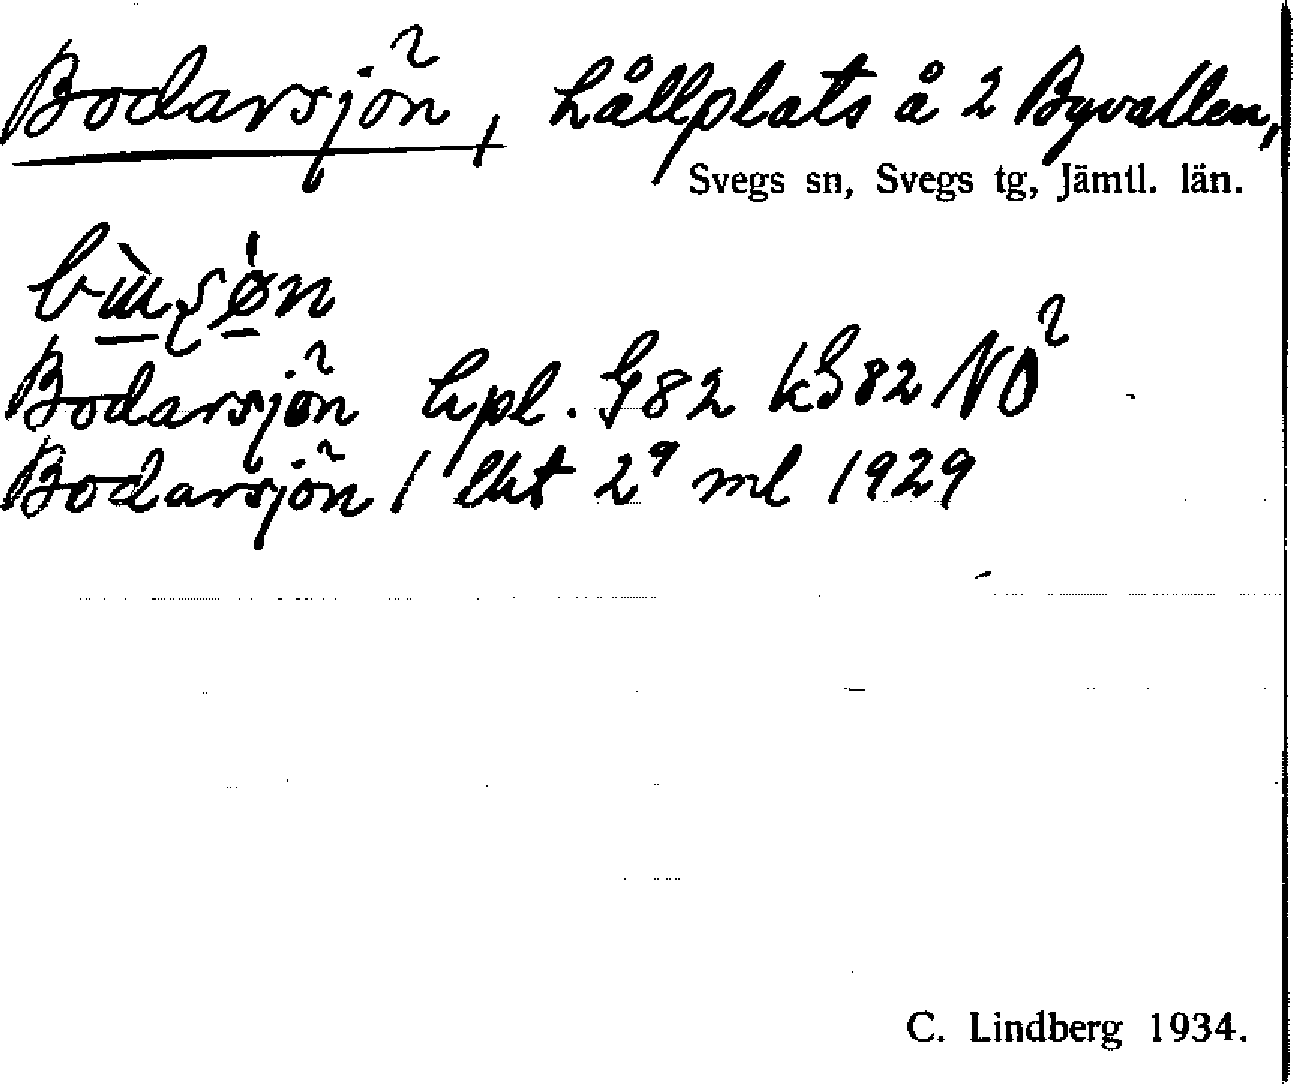 Bodarsjön, hållplats å 2 Byvallen,
Svegs sn, Svegs tg, Jämtl. län.
Bodarsjön hpl. G82 kG82 NO²
Bodarsjön 1 lht 2⁹ ml 1929
C. Lindberg 1934.